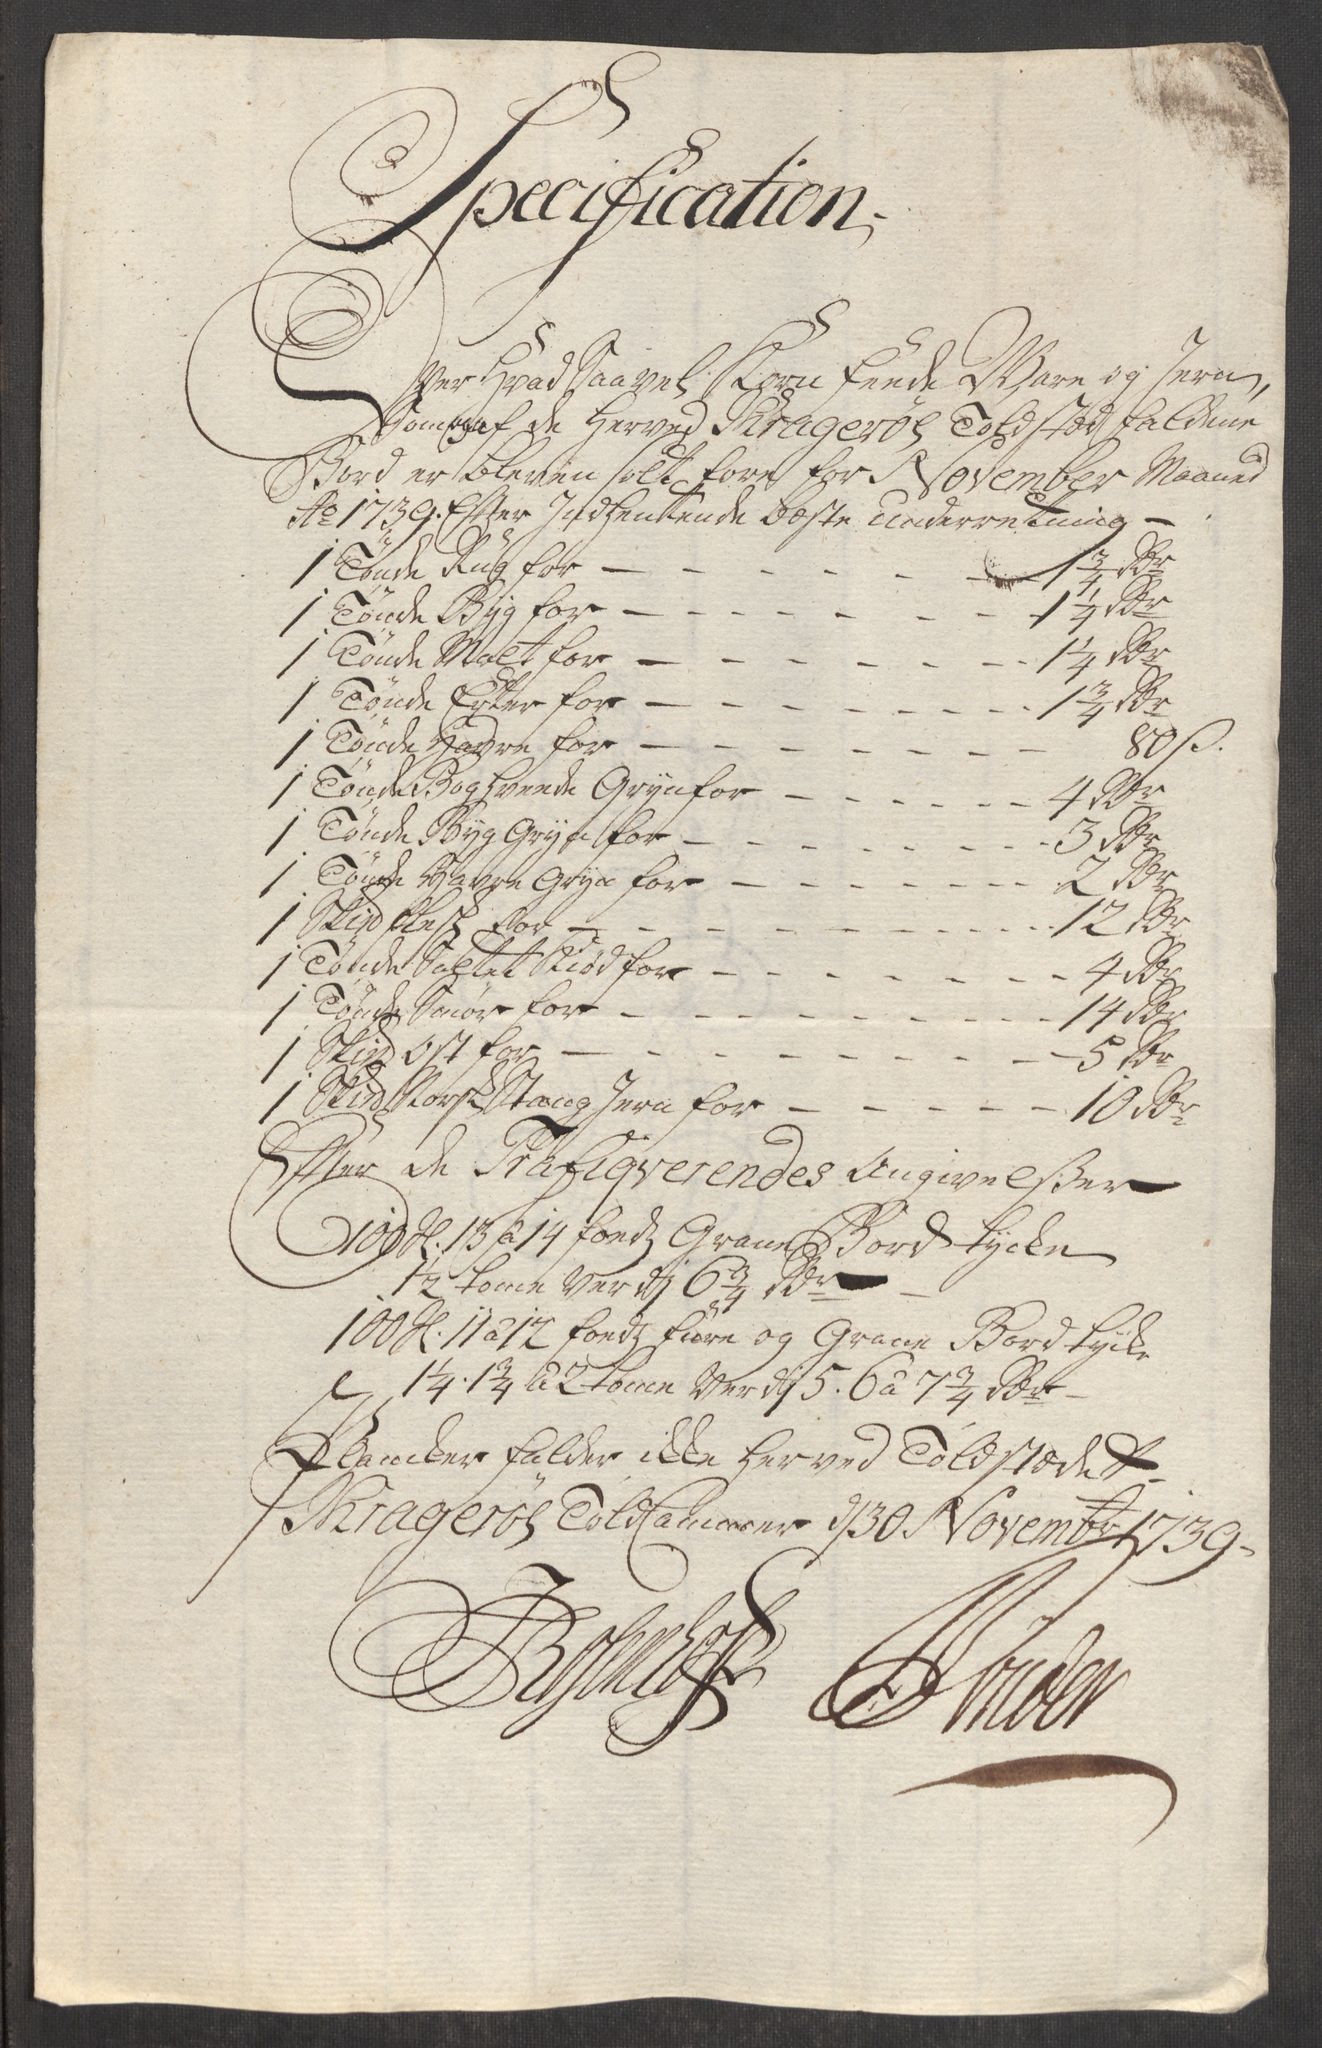 Specification,
Over Hvad Saavel Korn feede Ware og Jern,
Som af de Herved Kragerøes Toldstæd faldene
Bord er bleven solt fore for November Maaned
Ao 1739. Efter Indhentende beste Underretning –
1 Tønde Rug for – – – – – – – 1 3/4 Rdr
1 Tønde Byg for – – – – – – – 1 1/4 Rdr
1 Tønde Malt for – – – – – – – 1 1/4 Rdr
1 Tønde Erter for – – – – – – – 1 3/4 Rdr
1 Tønde Havre for – – – – – – – 80 ß.
1 Tønde Boghveede Gryn for – – – – – – 4 Rdr
1 Tønde Byg Gryn for – – – – – – – 3 Rdr
1 Tønde Havre Gryn for – – – – – – – 2 Rdr
1 Skind Flesk for – – – – – – – – 12 Rdr
1 Tønde Saltet Kiød for – – – – – – 4 Rdr
1 Tønde Smør for – – – – – – – – 14 Rdr
1 Skind Ost for – – – – – – – – 5 Rdr
1 Skind Norsk Stang Jern for – – – – – 10 Rdr
Efter de Trafiqverendes Angivelßer
100 st. 13 a 14 foeds Grane Bord tycke
1/2 tome Verdj 6 3/4 Rdr –
100 st. 11 a 12 foeds fure og Grane Bord tycke
1 1/4. 1 3/4 a 2 tome Verdj 5. 6 a 7 3/4 Rdr –
Plancker falder ikke Herved Toldstædet
Kragerøes Told Cammer d 30 November 1739.